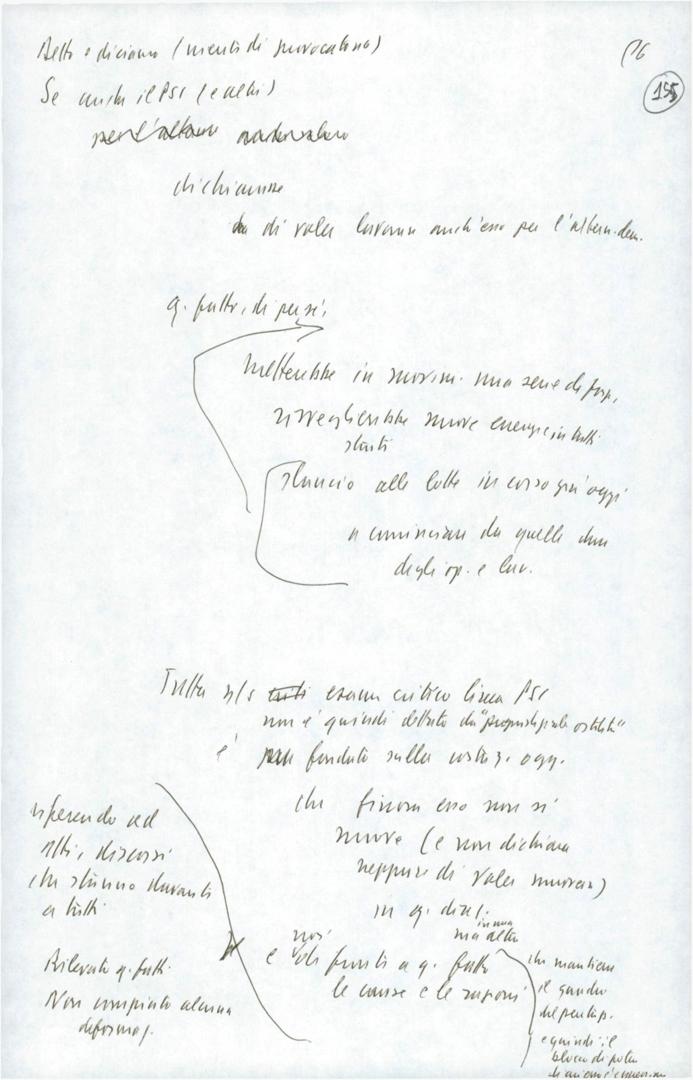 26
155
Detto e diciamo (niente di provocatorio)
Se anche il PSI (e altri)
per l'altern
dichiarasse
di voler lavorare anch'esso per l'altern. dem.
q. fatto, di per sé,
metterebbe in movim. una serie di forze,
risveglierebbe nuove energie in tutti
slancio alle lotte in corso già oggi
a cominciare da quelle
degli op. e lav.
Tutto n/s esame critico linea PSI
non è quindi dettato da "pregiudiziale ostilità"
è fondato sulla constaz. ogg.
che finora esso non si
muove (e non dichiara
neppure di voler muoversi)
in q. direz.
in una
ma altra
noi
e di fronti a q. fatto
le cause e le ragioni
riferendo ad
atti, discorsi
che stanno davanti
a tutti
Rilevato q. fatti.
Non compiuto alcuna
deformaz.
che mantiene
il quadro
del pentap.
e quindi il
blocco di potere